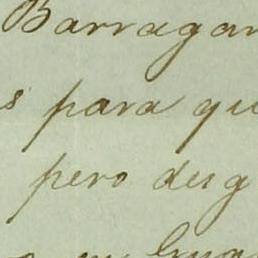 Barragan
s para qu
pero desg